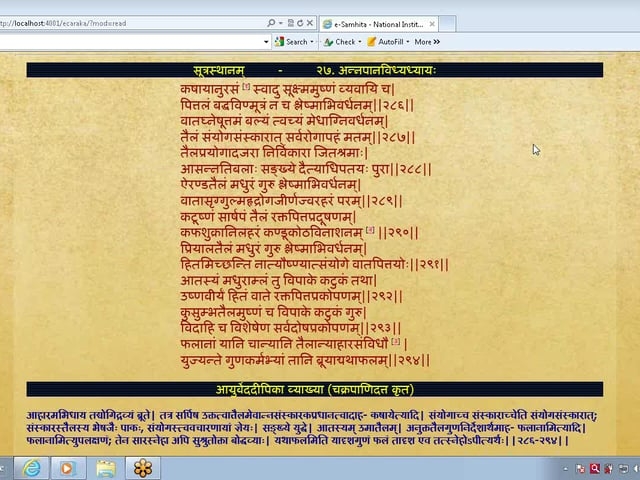 ttp://localhost:4001/ecaraka/?mod=read
e-Samhita - National Instit...
Search Check AutoFill More »
सूत्रस्थानम् - २७. अन्नपानविध्यध्यायः
कषायानुरसं [१] स्वादु सूक्ष्ममुष्णं व्यवायि च|
पित्तलं बद्धविण्मूत्रं न च श्लेष्माभिवर्धनम्||२८६||
वातघ्नेषूत्तमं बल्यं त्वच्यं मेधाग्निवर्धनम्|
तैलं संयोगसंस्कारात् सर्वरोगापहं मतम्||२८७||
तैलप्रयोगादजरा निर्विकारा जितश्रमाः|
आसन्नतिबलाः सङ्ख्ये दैत्याधिपतयः पुरा||२८८||
ऐरण्डतैलं मधुरं गुरु श्लेष्माभिवर्धनम्|
वातासृग्गुल्महृद्रोगजीर्णज्वरहरं परम्||२८९||
कटूष्णं सार्षपं तैलं रक्तपित्तप्रदूषणम्|
कफशुक्रानिलहरं कण्डूकोठविनाशनम् ||२९०||
प्रियालतैलं मधुरं गुरु श्लेष्माभिवर्धनम्|
हितमिच्छन्ति नात्यौष्ण्यात्संयोगे वातपित्तयोः||२९१||
आतस्यं मधुराम्लं तु विपाके कटुकं तथा|
उष्णवीर्यं हितं वाते रक्तपित्तप्रकोपणम्||२९२||
कुसुम्भतैलमुष्णं च विपाके कटुकं गुरु|
विदाहि च विशेषेण सर्वदोषप्रकोपणम्||२९३||
फलानां यानि चान्यानि तैलान्याहारसंविधौ |
युज्यन्ते गुणकर्मभ्यां तानि ब्रूयाद्यथाफलम्||२९४||
आयुर्वेददीपिका व्याख्या (चक्रपाणिदत्त कृत)
आहारमभिधाय तद्योगिद्रव्यं ब्रूते| तत्र सर्पिष उक्तत्वात्तैलमेवान्नसंस्कारकप्रधानत्वादाह- कषायेत्यादि| संयोगाच्च संस्काराच्चेति संयोगसंस्कारात्;
संस्कारस्तैलस्य भेषजैः पाकः, संयोगस्त्ववचारणायां ज्ञेयः| सङ्ख्ये युद्धे| आतस्यम् उमातैलम्| अनुक्ततैलगुणनिर्देशार्थमाह- फलानामित्यादि|
फलानामित्युपलक्षणं; तेन सारस्नेहा अपि सुश्रुतोक्ता बोद्धव्याः| यथाफलमिति यादृशगुणं फलं तादृश एव तत्स्नेहोऽपीत्यर्थः||२८६-२९४||